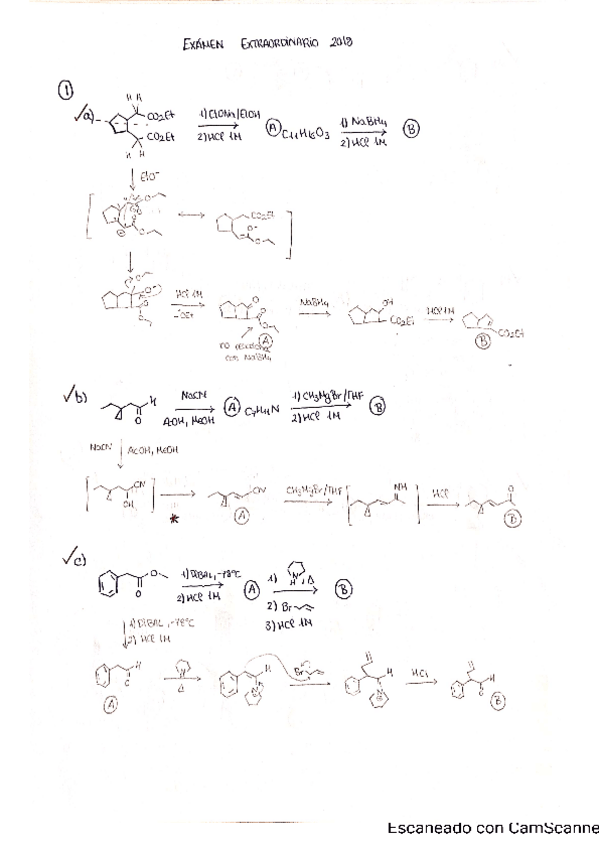 EXÁMEN EXTRAORDINARIO 2018
①
√a)
H H
CO2Et
CO2Et
H H
1) EtONa/EtOH
2) HCl 1M
Ⓐ C11H16O3
1) NaBH4
2) HCl 1M
Ⓑ
EtO⁻
CO2Et
HCl 1M
-OEt
Ⓐ
no reacciona
con NaBH4
NaBH4
OH
CO2Et
HCl 1M
CO2Et
Ⓑ
√b)
H
O
NaCN
AcOH, MeOH
Ⓐ C7H11N
1) CH3MgBr/THF
2) HCl 1M
Ⓑ
NaCN AcOH, MeOH
CN
OH
*
CN
Ⓐ
CH3MgBr/THF
NH
HCl
O
Ⓑ
√c)
O
O
1) DIBAL, -78ºC
2) HCl 1M
Ⓐ
1) N H , Δ
2) Br
3) HCl 1M
Ⓑ
1) DIBAL, -78ºC
2) HCl 1M
H
O
Ⓐ
N
Δ
H
N
Br
H
N
HCl
H
O
Ⓑ
Escaneado con CamScanne